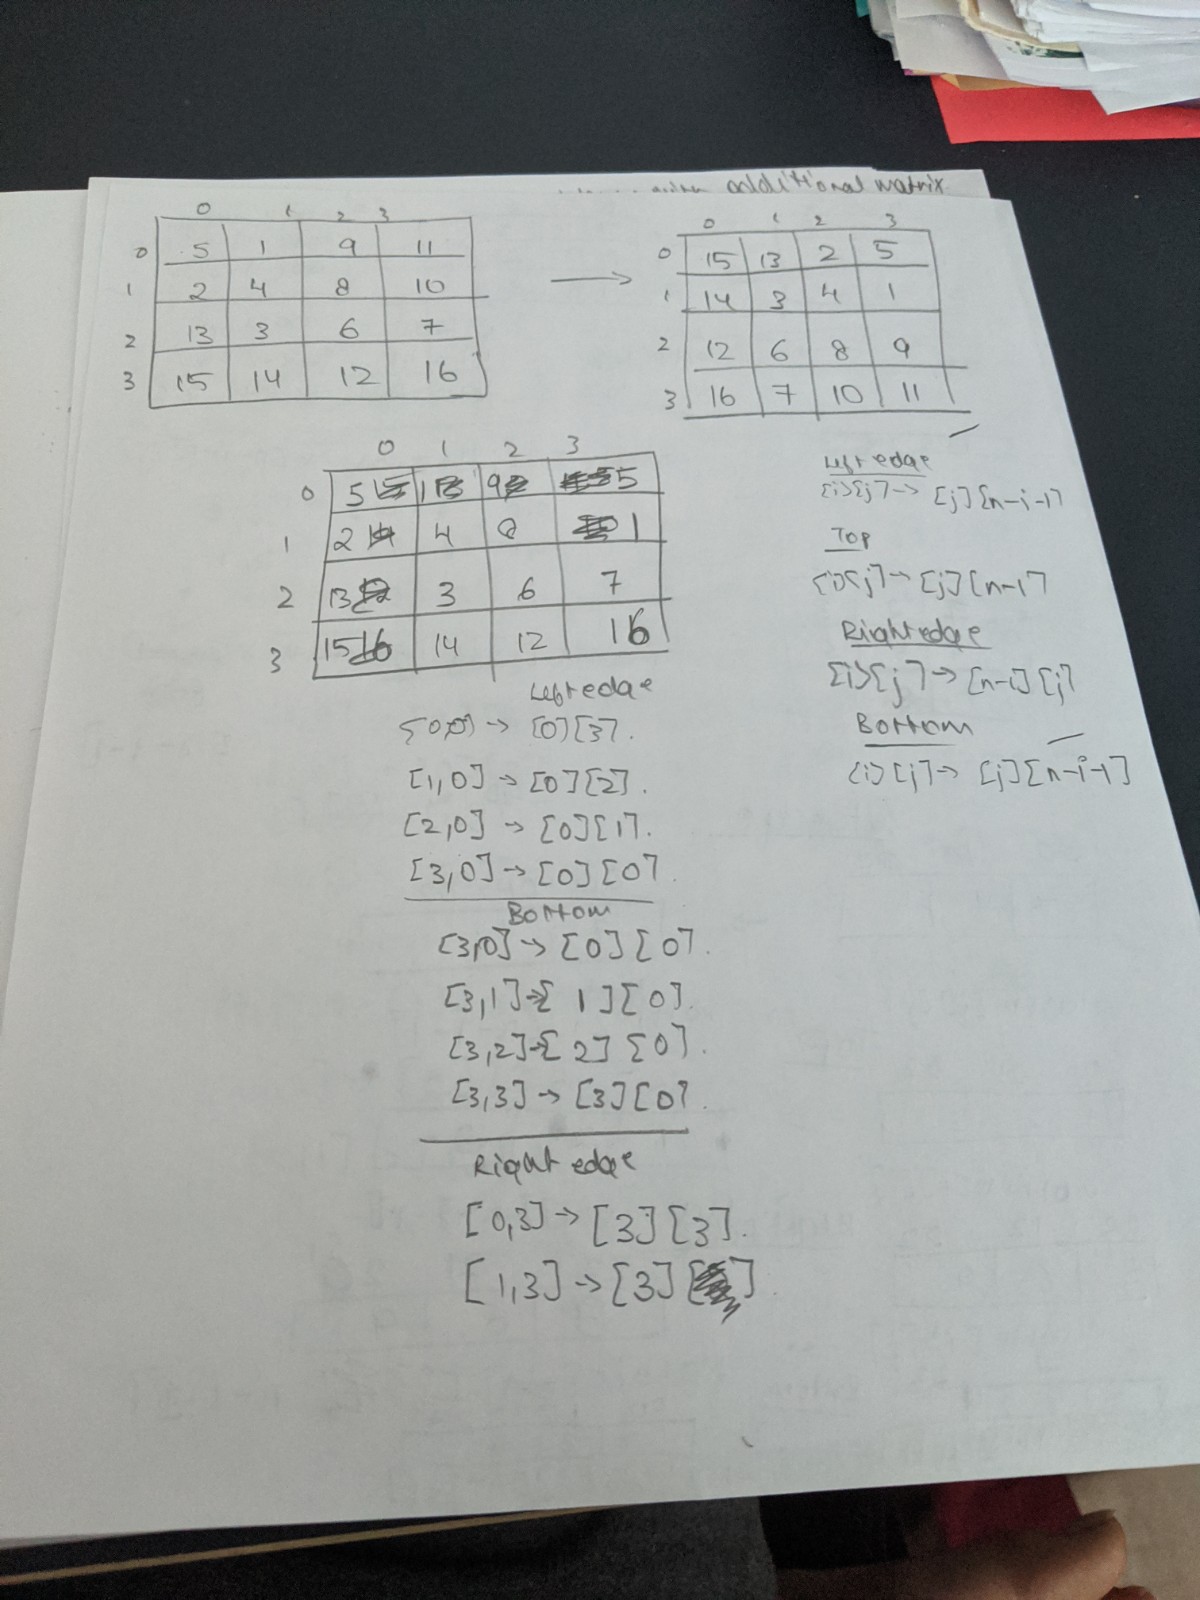 additional matrix
0 1 2 3
0 5 1 9 11
1 2 4 8 10
2 13 3 6 7
3 15 14 12 16
→
0 1 2 3
0 15 13 2 5
1 14 3 4 1
2 12 6 8 9
3 16 7 10 11
0 1 2 3
0 5 1 9 5
1 2 4 8 1
2 13 3 6 7
3 15 14 12 16
Left edge
[0,0] → [0][3].
[1,0] → [0][2].
[2,0] → [0][1].
[3,0] → [0][0].
Bottom
[3,0] → [0][0].
[3,1] → [1][0].
[3,2] → [2][0].
[3,3] → [3][0].
Right edge
[0,3] → [3][3].
[1,3] → [3][ ].
Left edge
[i][j] → [j][n-i-1]
Top
[i][j] → [j][n-1]
Right edge
[i][j] → [n-i][j]
Bottom
[i][j] → [j][n-i-1]